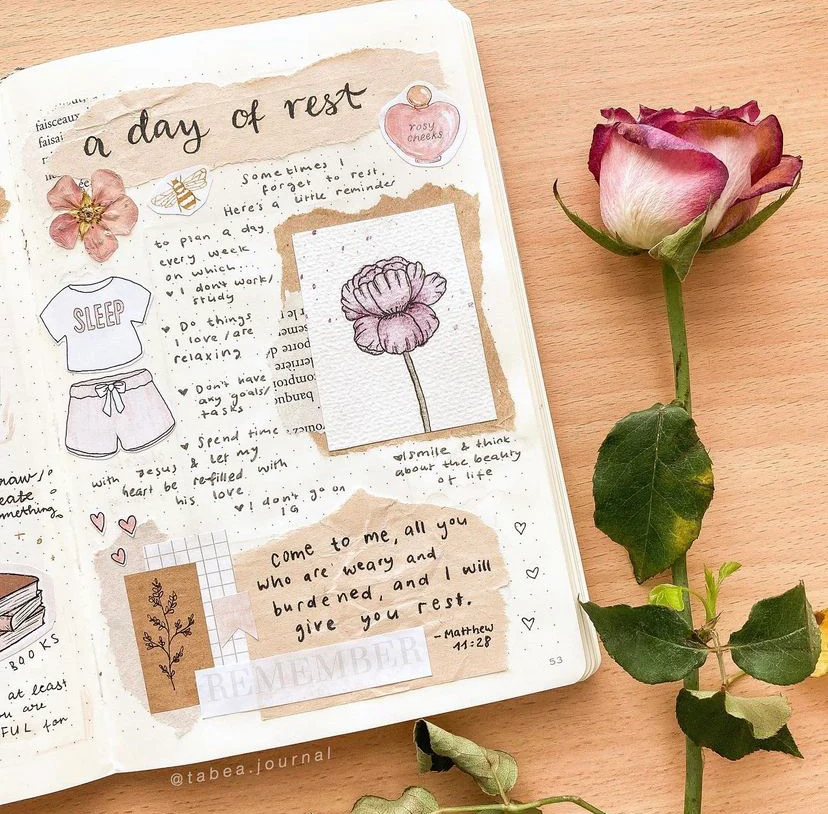 faisceaux
faisai
a day of rest
rosy
cheeks
Sometimes I
forget to rest.
Here's a little reminder
to plan a day
every week
on which...
♥ I don't work/
study
♥ Do things
I love/are
relaxing
♥ Don't have
any goals/
tasks
♥ Spend time
with Jesus & let my
heart be refilled with
his love
♥ I don't go on
IG
SLEEP
r le
sement
porte de
derrière
comptoi
banque
♥ Smile & think
about the beauty
of life
Come to me, all you
who are weary and
burdened, and I will
give you rest.
-Matthew
11:28
REMEMBER
53
mething
BOOKS
at least
u are
FUL for
@tabea.journal